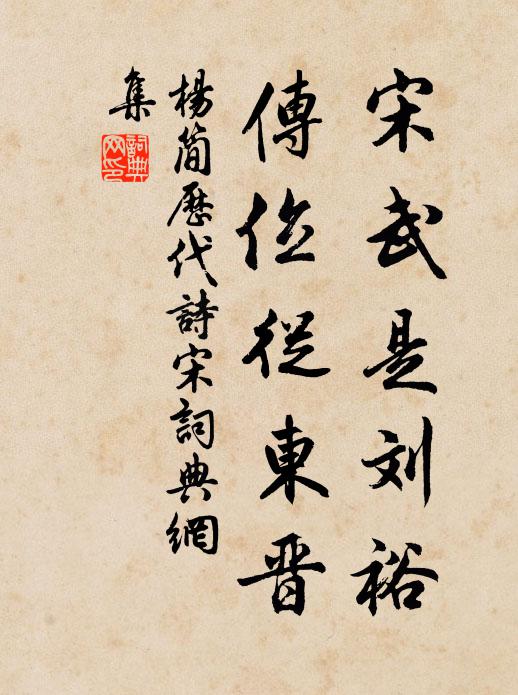 宋武是刘裕
傳位從東晋
楊簡歷代詩宋詞典網
集
詞典
网印